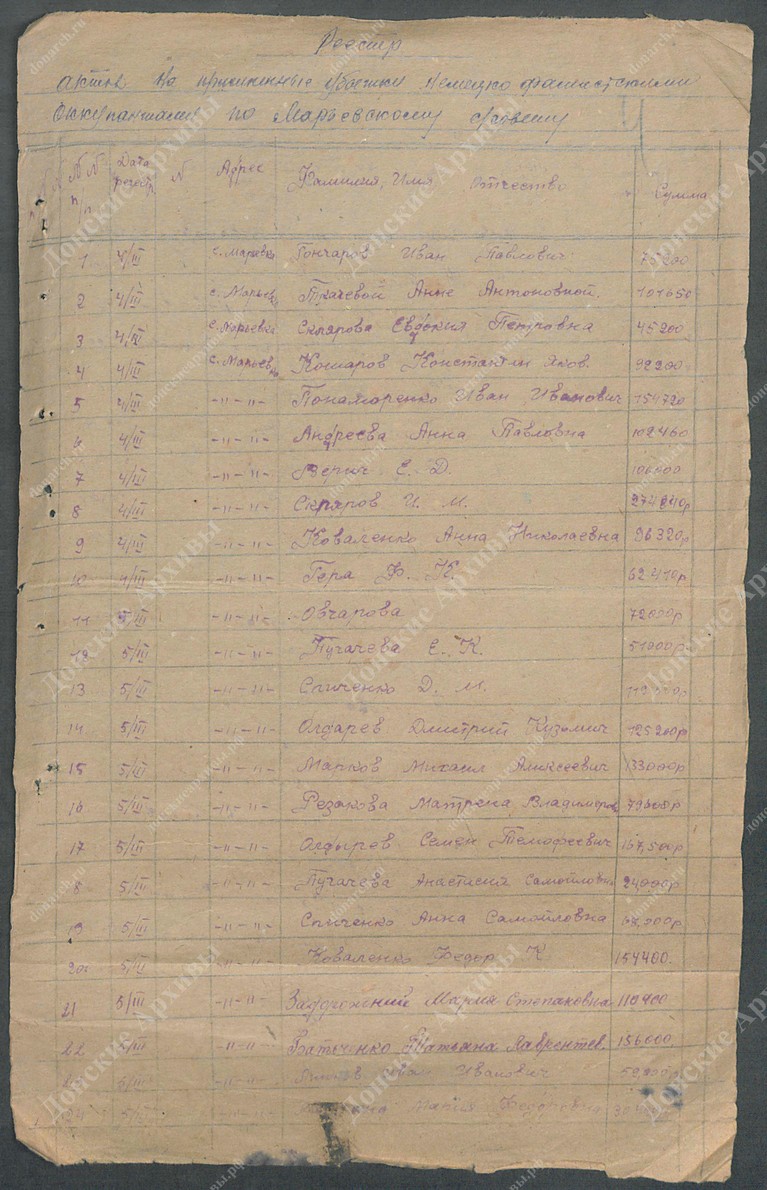 Реестр
актов на причиненные убытки немецко фашистскими
Оккупантами по Марьевскому с/совету
№ № п/п Дата регистр № Адрес Фамилия, Имя Отчество Сумма
1 4/III с. Марьевка Гончаров Иван Павлович
2 4/III с. Марьевка Ткачевой Анне Антоновной 101650
3 4/III с. Марьевка Склярова Евдокия Петровна 45200
4 4/III с. Марьевка Комаров Константин Яков. 92200
5 4/III -"-"- Понаморенко Иван Иванович 154720
6 4/III -"-"- Андреева Анна Павловна 102460
7 4/III -"-"- Е. Д.
8 4/III -"-"- Скляров И. М. 274840р
9 4/III -"-"- Коваленко Анна Николаевна 96320р
10 4/III -"-"- Гера Ф. К. 62410р
11 5/III -"-"- Овчарова
12 5/III -"-"- Пугачева Е. К. 51000р
13 5/III -"-"- Спиченко Д. М.
14 5/III -"-"- Олдарев Дмитрий Кузомич 125200р
15 5/III -"-"- Марков Михаил Алексеевич 133000р
16 5/III -"-"- Резакова Матрена Владимиров
17 5/III -"-"- Олдырев Семен Темофеевич 167,500р
8 5/III -"-"- Пугачева Анастисия Самойловна 24000р
19 5/III -"-"- Спиченко Анна Самойловна
20 5/III -"-"- Коваленко Федор К 154400.
21 5/III -"-"- Задорожний Мария Степановна
22 5/III -"-"- Батьченко Татьяна Лаврентев. 156000.
5/III -"-"- Иван Иванович
24 5/III Мария Федоровна
Донские Архивы
donarch.ru